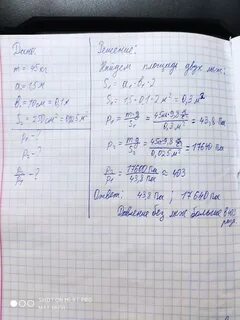 Дано:
m = 45 кг
a = 1.5 м
b = 10 см = 0,1 м
S₂ = 250 см² = 0,025 м²
p₁ - ?
p₂ - ?
p₂/p₁ - ?
Решение:
Найдем площадь двух лыж:
S₁ = a₁ · b₁ · 2
S₁ = 1.5 · 0.1 · 2 м² = 0,3 м²
p₁ = m·g/S₁ = 45кг·9.8/0,3 м² = 43,8 Па
p₂ = m·g/S₂ = 45кг·9.8/0,025 м² = 17640 Па
p₂/p₁ = 17600 Па/43,8 Па ≈ 403
Ответ: 43,8 Па ; 17640 Па
Давление без лыж больше в 403
раз
SHOT ON MI 9T PRO